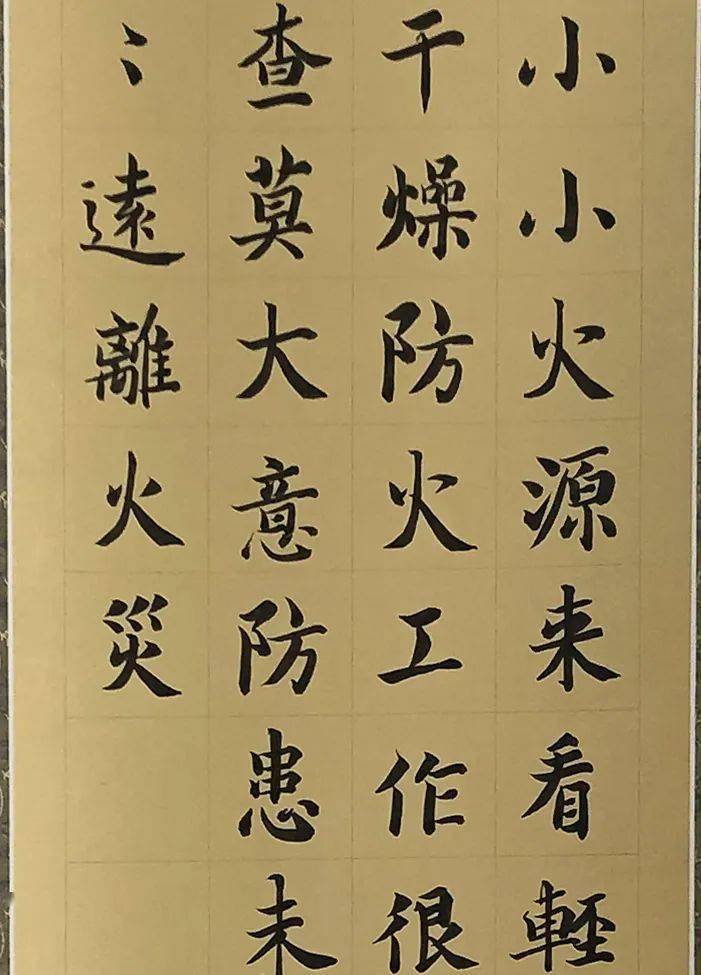 小小火源来看輕
干燥防火工作很
查莫大意防患未
⺀遠離火災